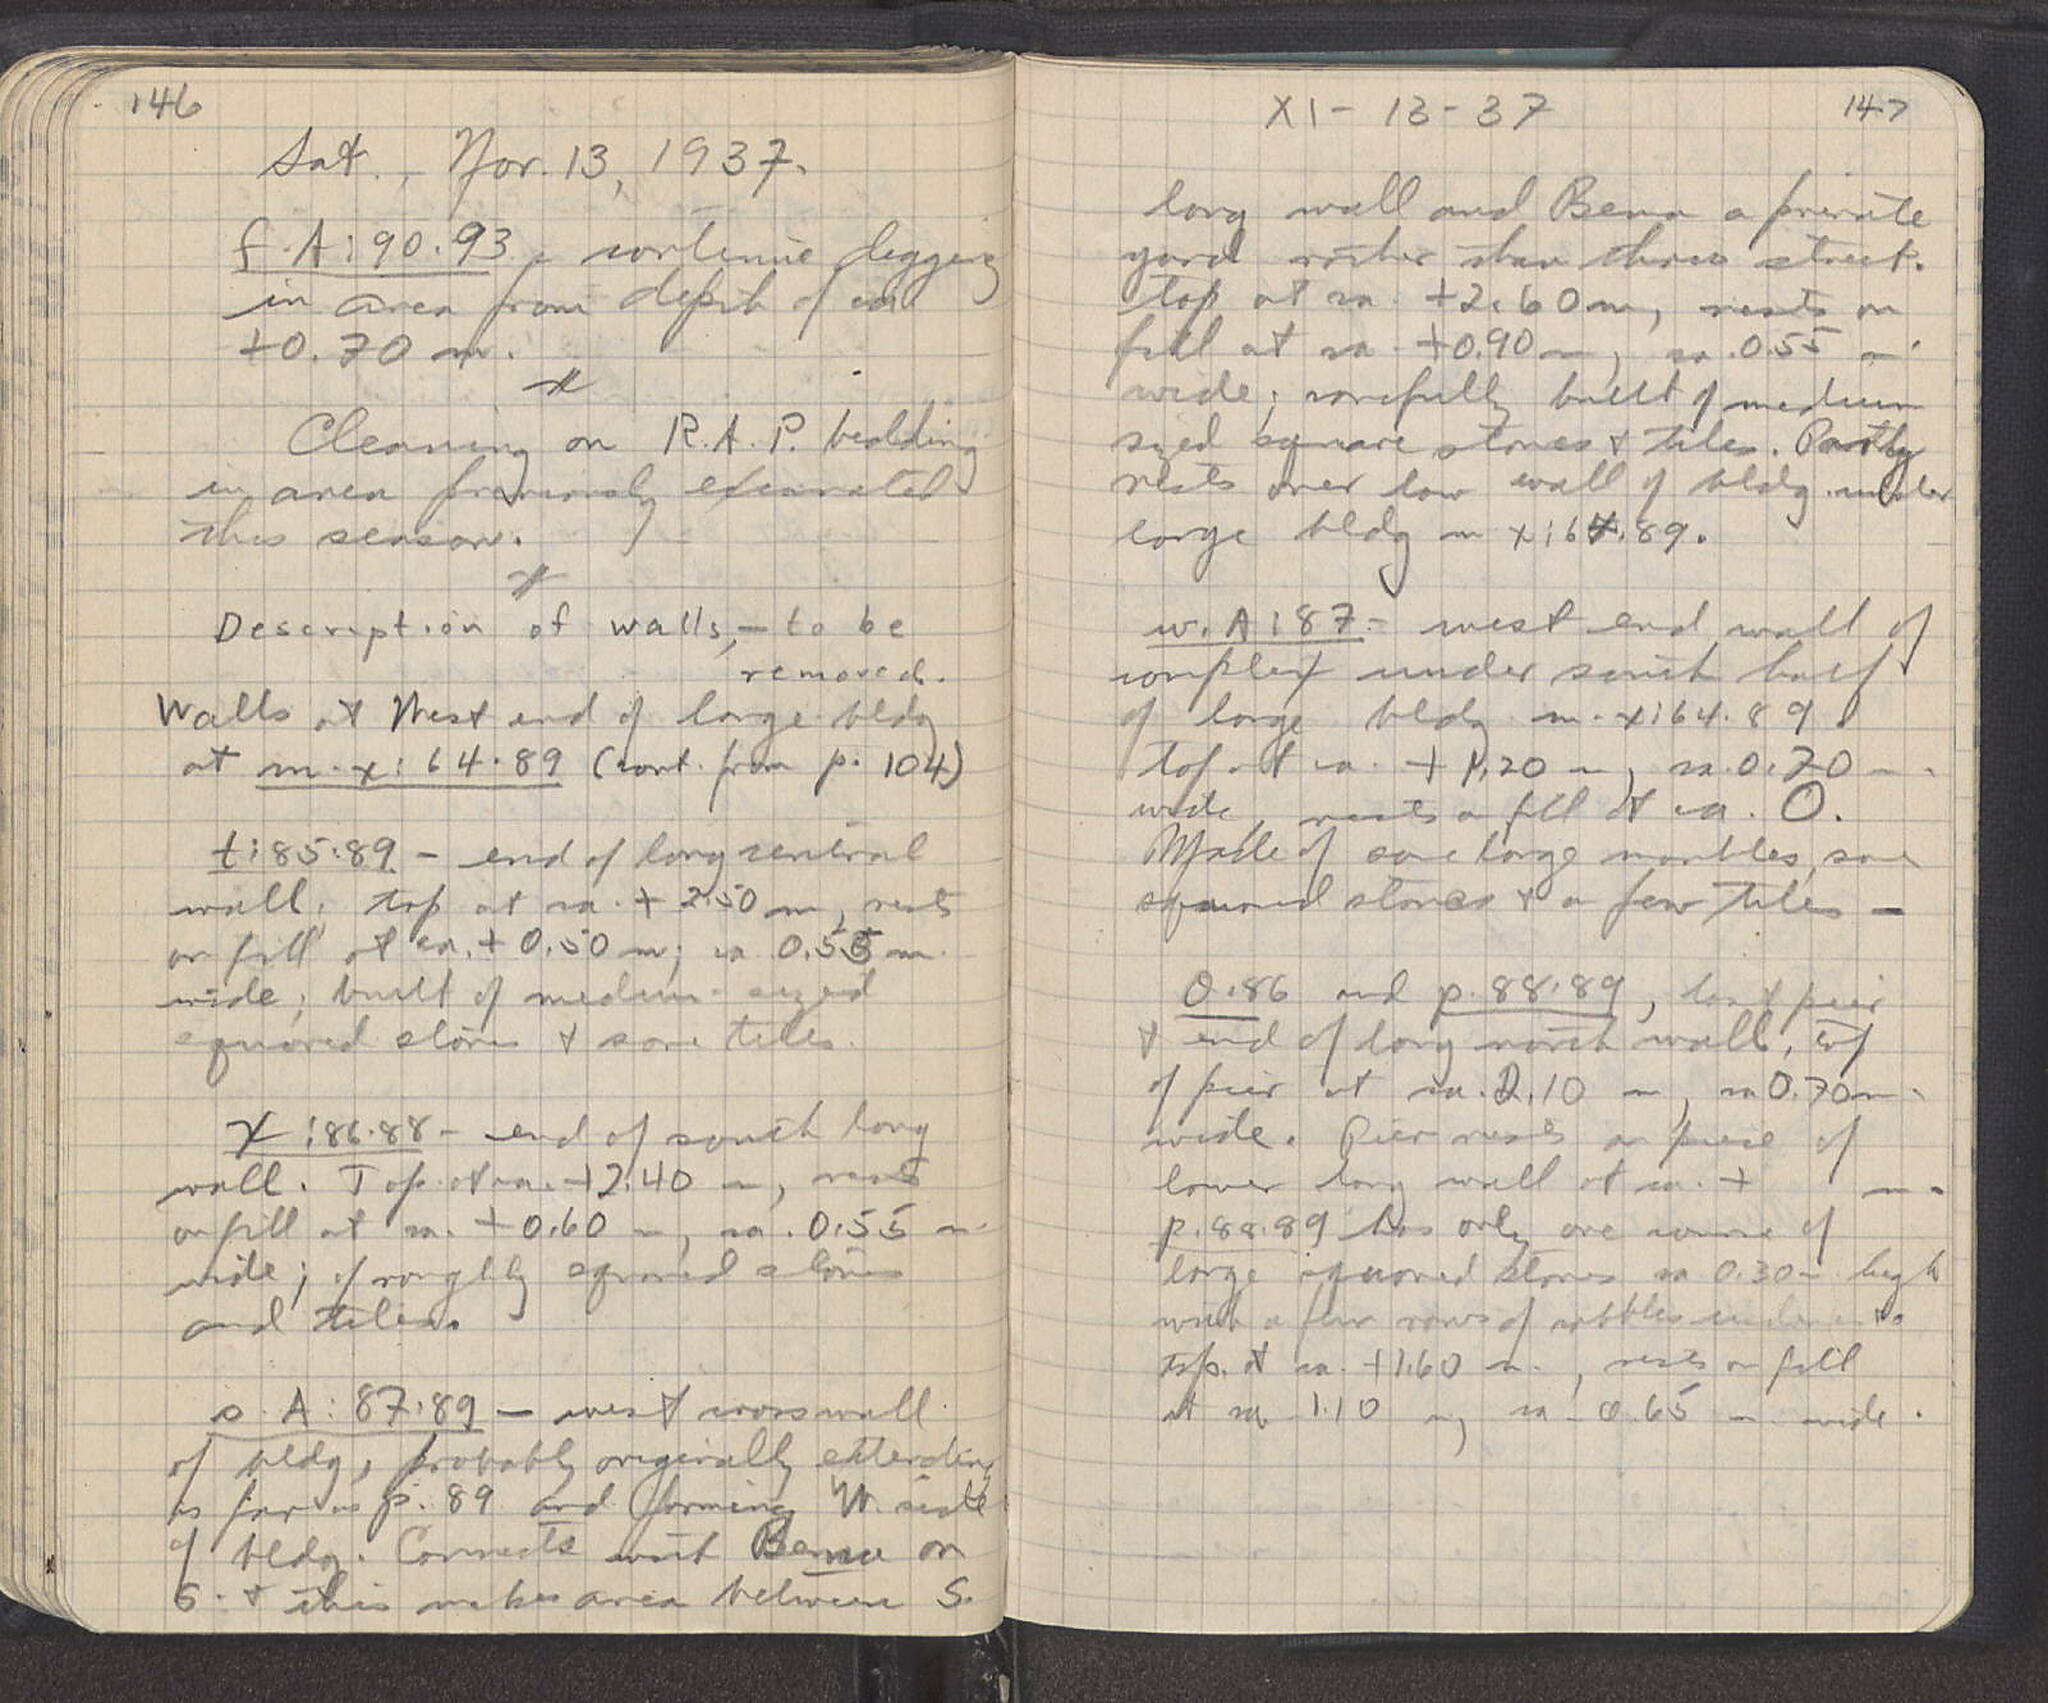 146
Sat., Nov. 13, 1937.
f.A:90.93 - continue digging
in area from depth of ca
+0.70 m.
Cleaning on R.A.P. bedding
in area previously excavated
this season.
Description of walls, - to be
removed.
Walls at West end of large bldg
at m-x:64.89 (cont. from p. 104)
t:85:89 - end of long central
wall; top at ca. +2.50 m, rests
on fill at ca. +0.50 m; ca 0.55 m.
wide; built of medium-sized
squared stones & some tiles.
x:86.88 - end of south long
wall. Top at ca. +2.40 m, rests
on fill at ca. +0.60 m, ca. 0.55 m.
wide; of roughly squared stones
and tiles.
s.A:87.89 - west cross wall
of bldg, probably originally extending
as far as p.89 and forming W. side
of bldg. Connects with Bema on
S. & this makes area between S.
XI - 13 - 37
147
long wall and Bema a private
yard rather than street.
top at ca. +2.60 m, rests on
fill at ca. +0.90 m, ca. 0.55 m
wide; carefully built of medium
sized square stones & tiles. Partly
rests over low wall of bldg under
large bldg m-x:64.89.
w.A:87 - west end wall of
complex under south half
of large bldg m-x:64.89.
top at ca. +1.20 m, ca. 0.70 m.
wide, rests on fill at ca. 0.
Made of some large marbles, some
squared stones & a few tiles -
O.86 and p.88.89, last pier
& end of long north wall, top
of pier at ca. 2.10 m, ca 0.70 m.
wide. Pier rests on piece of
lower long wall at ca. + m.
p.88.89 has only one course of
large squared stones ca 0.30 m high
with a few rows of cobbles
top at ca. +1.60 m., rests on fill
at ca 1.10 m, ca. 0.65 m wide.